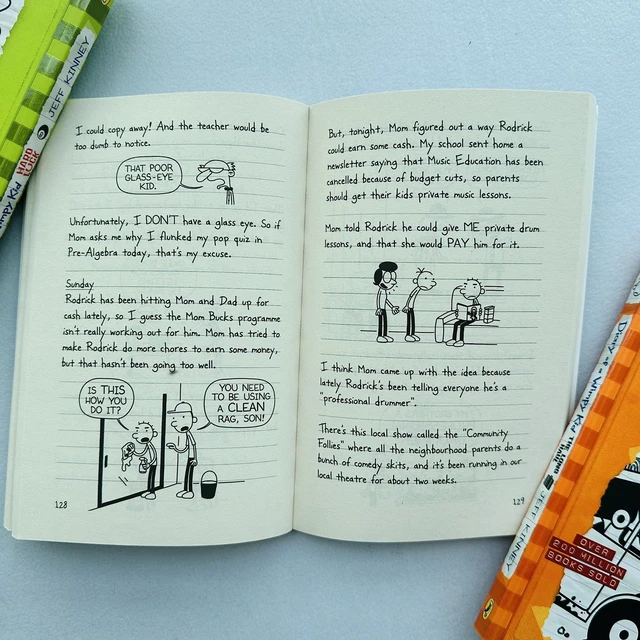 JEFF KINNEY
Wimpy Kid
HARD
LUCK
I could copy away! And the teacher would be
too dumb to notice.
THAT POOR
GLASS-EYE
KID.
Unfortunately, I DON'T have a glass eye. So if
Mom asks me why I flunked my pop quiz in
Pre-Algebra today, that's my excuse.
Sunday
Rodrick has been hitting Mom and Dad up for
cash lately, so I guess the Mom Bucks programme
isn't really working out for him. Mom has tried to
make Rodrick do more chores to earn some money,
but that hasn't been going too well.
IS THIS
HOW YOU
DO IT?
YOU NEED
TO BE USING
A CLEAN
RAG, SON!
128
But, tonight, Mom figured out a way Rodrick
could earn some cash. My school sent home a
newsletter saying that Music Education has been
cancelled because of budget cuts, so parents
should get their kids private music lessons.
Mom told Rodrick he could give ME private drum
lessons, and that she would PAY him for it.
I think Mom came up with the idea because
lately Rodrick's been telling everyone he's a
"professional drummer".
There's this local show called the "Community
Follies" where all the neighbourhood parents do a
bunch of comedy skits, and it's been running in our
local theatre for about two weeks.
129
Diary of a Wimpy Kid
THE LONG
HAUL
JEFF KINNEY
OVER
200 MILLION
BOOKS SOLD